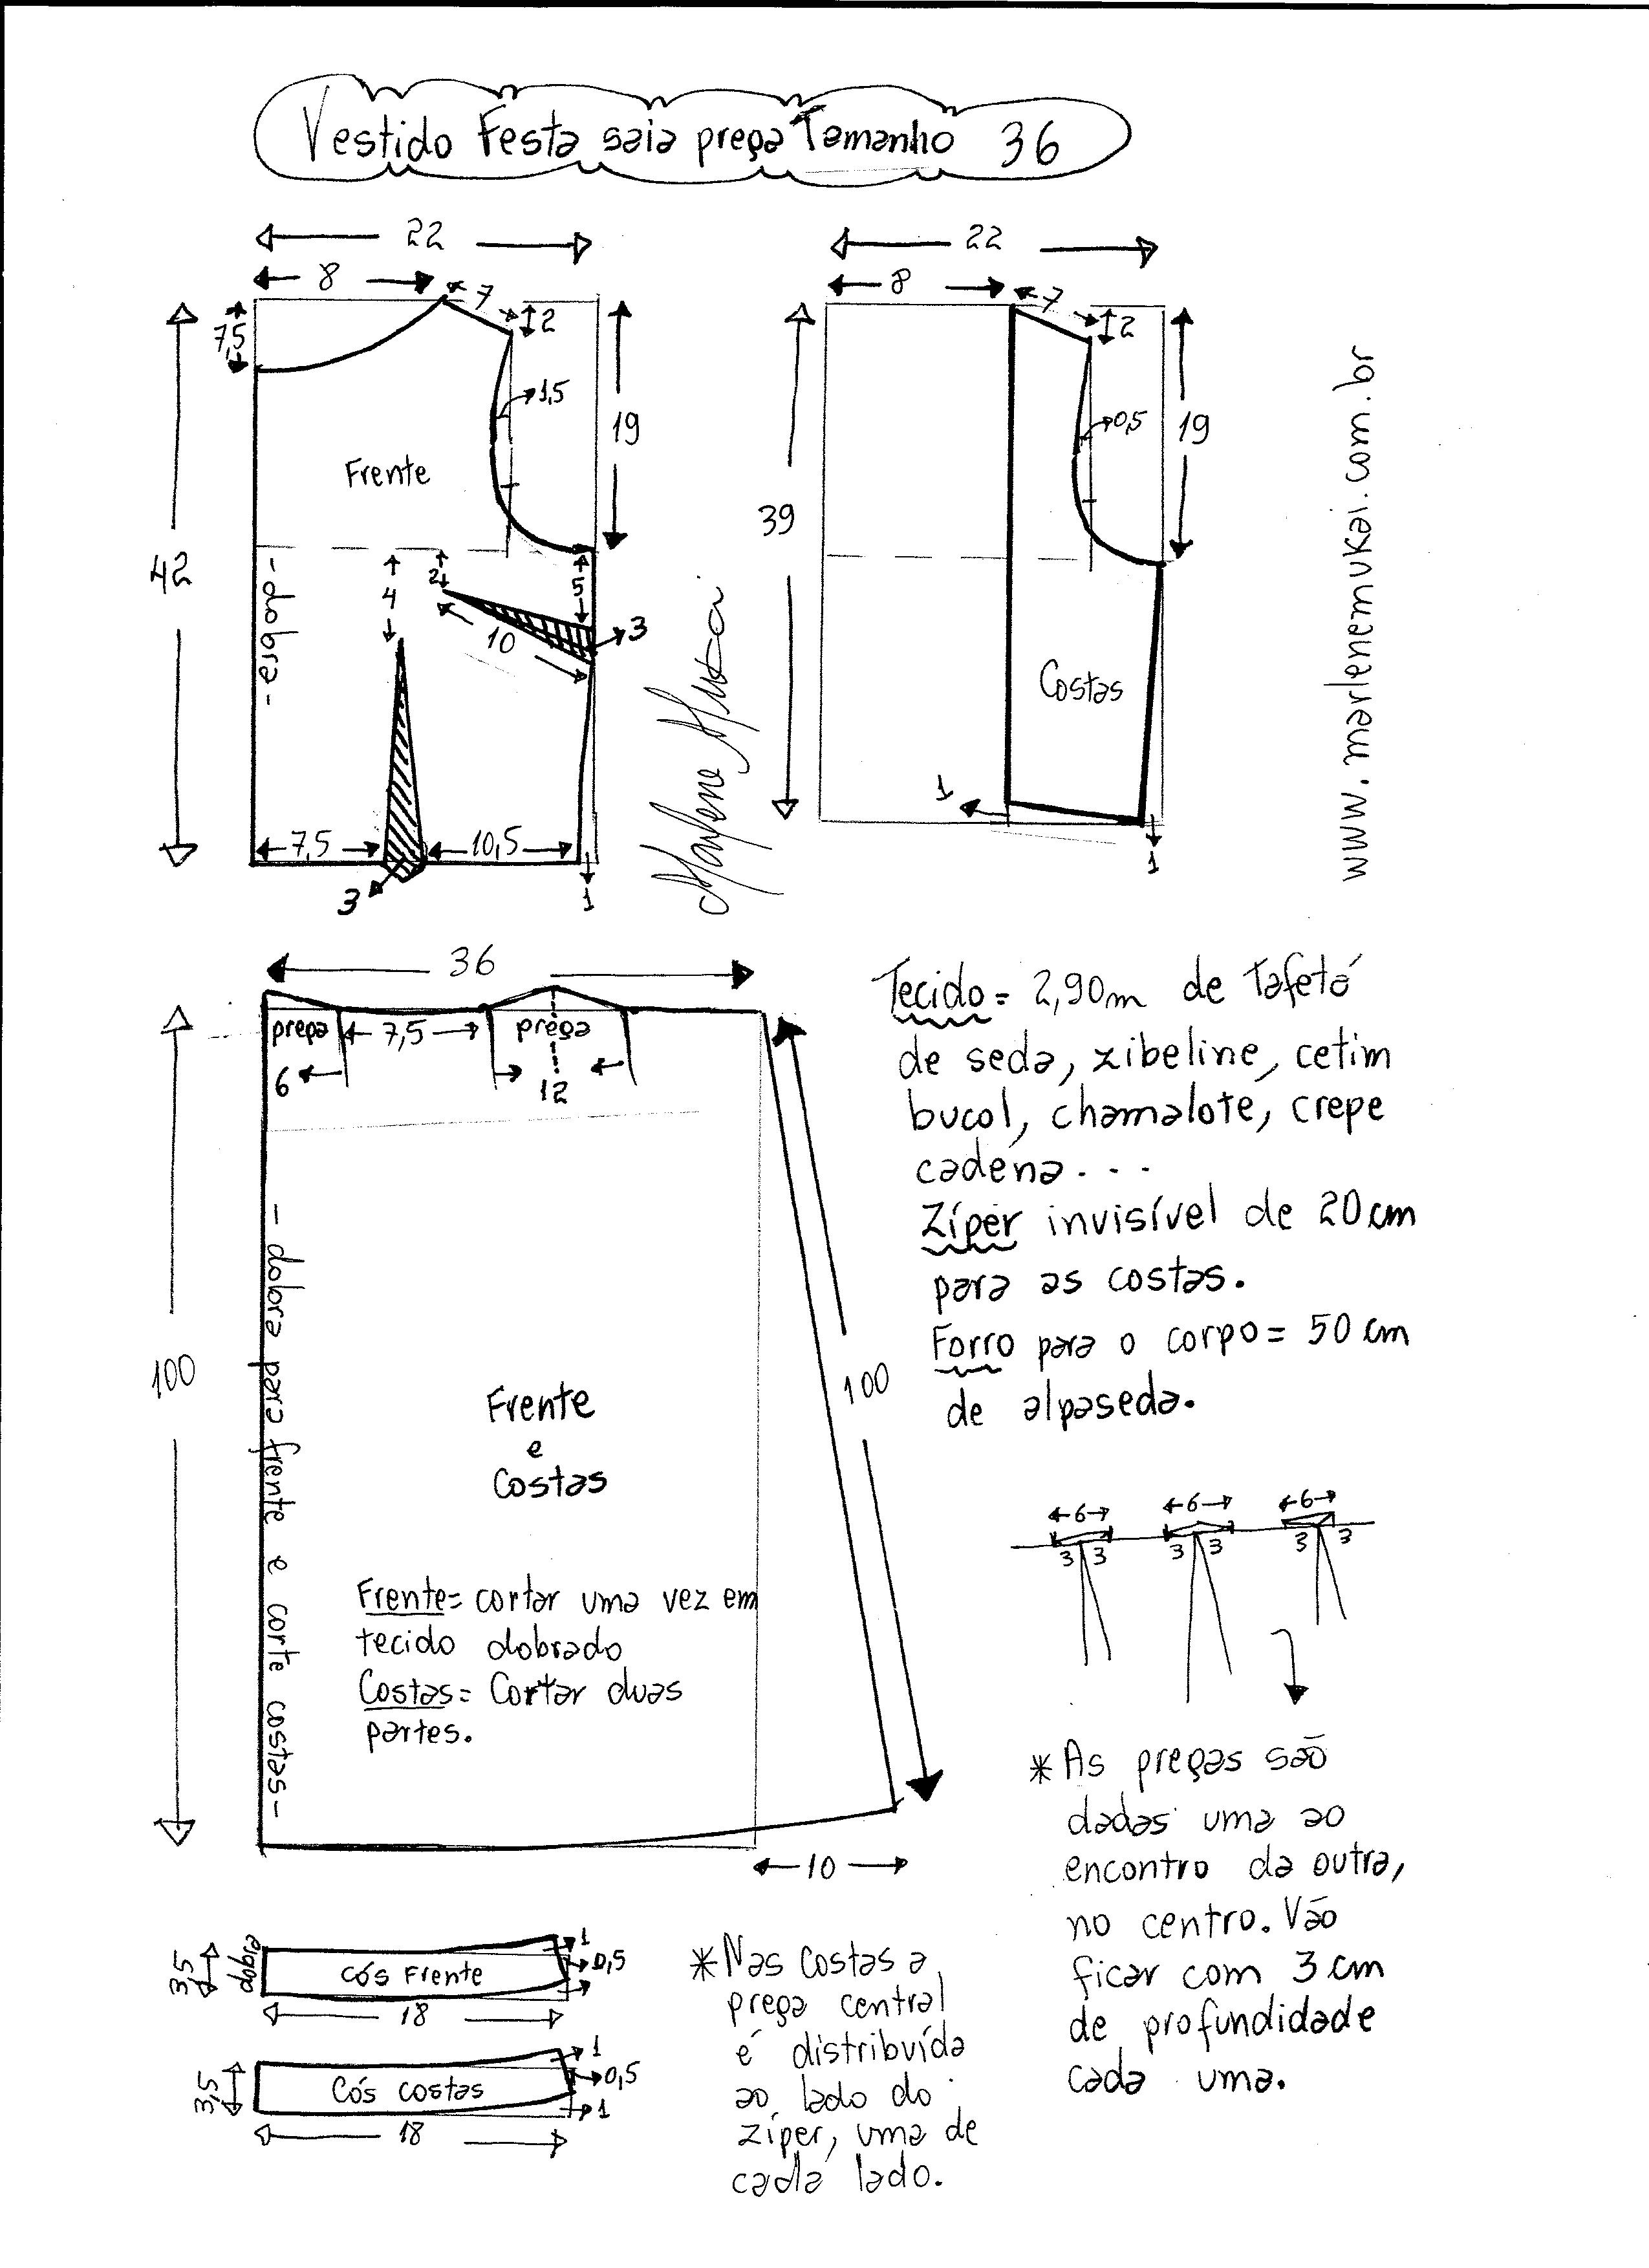 Vestido Festa saia prega Tamanho 36
22
8
7
2
7,5
1,5
19
Frente
42
-dobra-
4
2
5
10
3
7,5
10,5
3
1
22
8
7
2
0,5
19
39
Costas
1
1
Marlene Mukai
www.marlenemukai.com.br
36
prega
7,5
prega
6
12
100
-dobra para frente e corte costas-
100
Frente
e
Costas
Frente= cortar uma vez em
tecido dobrado
Costas= Cortar duas
partes.
10
Tecido= 2,90m de Tafetá
de seda, zibeline, cetim
bucol, chamalote, crepe
cadena...
Zíper invisível de 20cm
para as costas.
Forro para o corpo= 50cm
de alpaseda.
6
6
6
3 3
3 3
3 3
*As pregas são
dadas uma ao
encontro da outra,
no centro. Vão
ficar com 3cm
de profundidade
cada uma.
3,5
dobra
Cós Frente
1
0,5
18
3,5
Cós costas
1
0,5
1
18
*Nas costas a
prega central
é distribuída
ao lado do
zíper, uma de
cada lado.